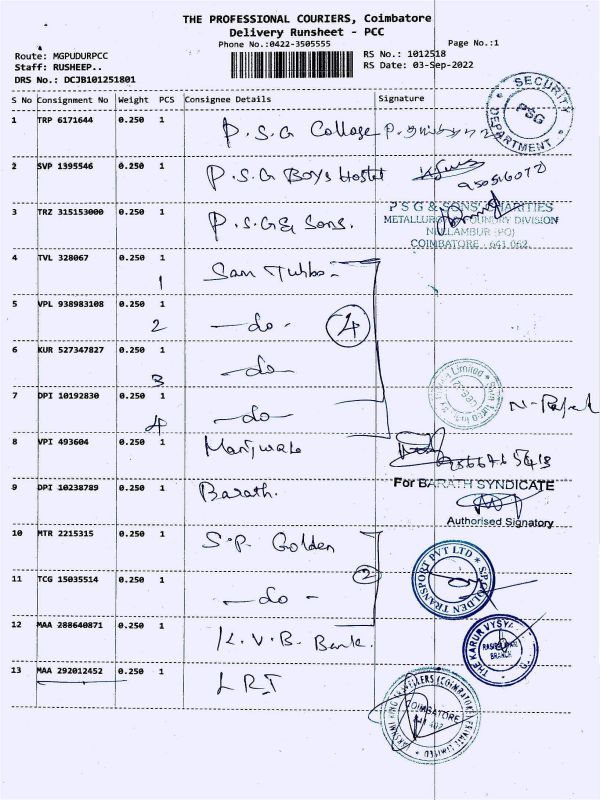 THE PROFESSIONAL COURIERS, Coimbatore
Delivery Runsheet - PCC
Phone No.:0422-3505555
Page No.:1
Route: MGPUDURPCC
RS No.: 1012518
Staff: RUSHEEP..
RS Date: 03-Sep-2022
DRS No.: DCJB101251801
S No Consignment No Weight PCS Consignee Details Signature
1 TRP 6171644 0.250 1 P.S.G College
SECURITY DEPARTMENT PSG
2 SVP 1395546 0.250 1 P.S.G Boys Hostel
3 TRZ 315153000 0.250 1 P.S.G & Sons.
P S G & SONS' CHARITIES
METALLURGY & FOUNDRY DIVISION
NEELAMBUR (PO)
COIMBATORE - 641 062.
4 TVL 328067 0.250 1 San Turbo -
1
5 VPL 938983108 0.250 1 -do-
2 4
6 KUR 527347827 0.250 1 -do-
3
7 DPI 10192830 0.250 1 -do-
4
8 VPI 493604 0.250 1
9 DPI 10238789 0.250 1 Barath.
For BARATH SYNDICATE
Authorised Signatory
10 MTR 2215315 0.250 1 S.P. Golden
SP.GOLDEN TRANSPORT PVT LTD
11 TCG 15035514 0.250 1 -do-
2
12 MAA 288640871 0.250 1 K.V.B. Bank.
THE KARUR VYSYA
BRANCH
13 MAA 292012452 0.250 1 LRT
COIMBATORE